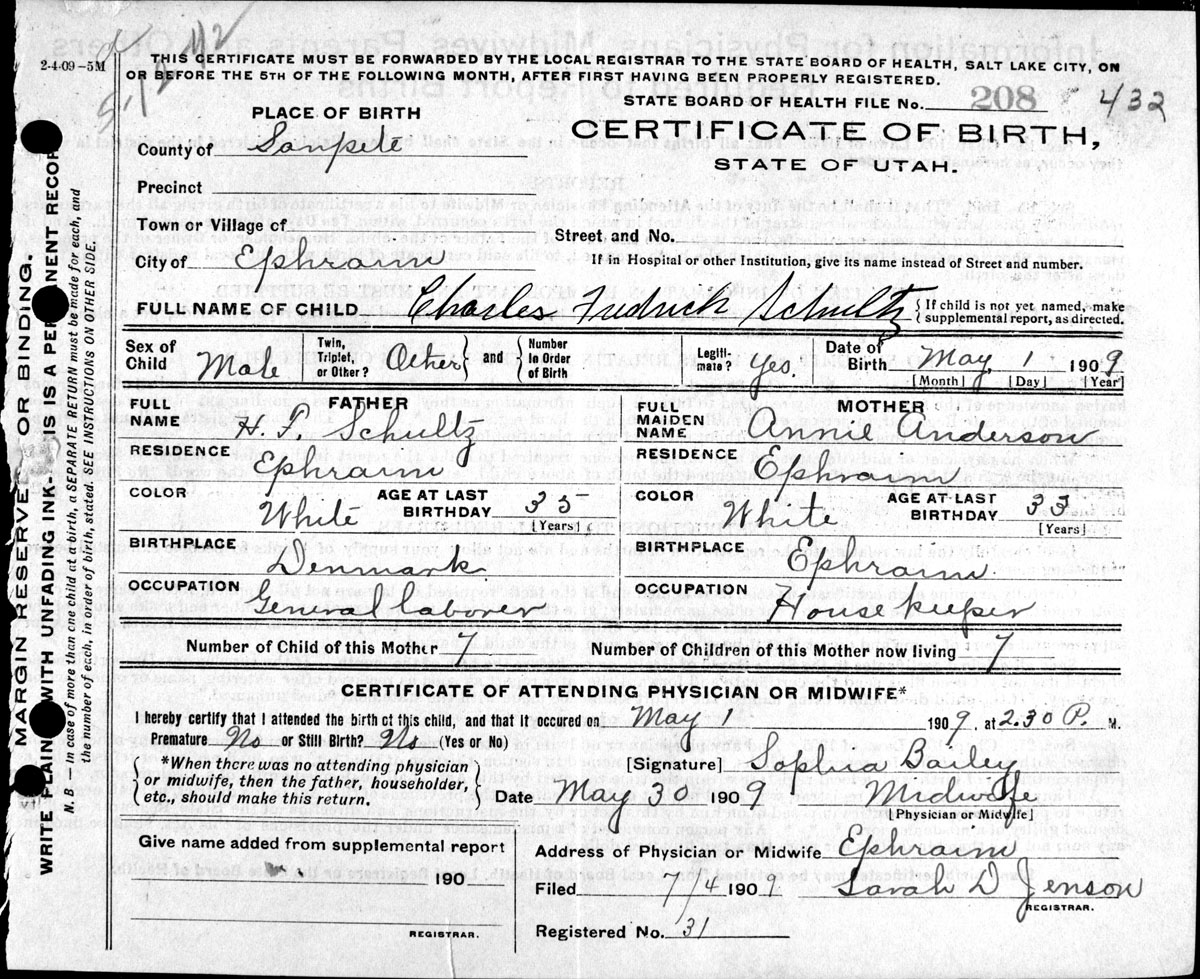 2-4-09-5M
THIS CERTIFICATE MUST BE FORWARDED BY THE LOCAL REGISTRAR TO THE STATE BOARD OF HEALTH, SALT LAKE CITY, ON
OR BEFORE THE 5TH OF THE FOLLOWING MONTH, AFTER FIRST HAVING BEEN PROPERLY REGISTERED.
STATE BOARD OF HEALTH FILE No. 208 4/32
PLACE OF BIRTH
CERTIFICATE OF BIRTH,
STATE OF UTAH.
County of Sanpete
Precinct
Town or Village of
Street and No.
City of Ephraim
If in Hospital or other Institution, give its name instead of Street and number.
FULL NAME OF CHILD Charles Fredrick Schultz { If child is not yet named, make supplemental report, as directed.
Sex of Child Male Twin, Triplet, or Other? Other } and { Number in Order of Birth Legiti-mate? Yes. Date of Birth May 1 1909
[Month] [Day] [Year]
FATHER
FULL NAME H. F. Schultz
RESIDENCE Ephraim
COLOR White AGE AT LAST BIRTHDAY 35
[Years]
BIRTHPLACE Denmark
OCCUPATION General laborer
MOTHER
FULL MAIDEN NAME Annie Anderson
RESIDENCE Ephraim
COLOR White AGE AT LAST BIRTHDAY 33
[Years]
BIRTHPLACE Ephraim
OCCUPATION House keeper
Number of Child of this Mother 7 Number of Children of this Mother now living 7
CERTIFICATE OF ATTENDING PHYSICIAN OR MIDWIFE*
I hereby certify that I attended the birth of this child, and that it occured on May 1 1909, at 2.30 P. M.
Premature No or Still Birth? No (Yes or No)
{ *When there was no attending physician
or midwife, then the father, householder,
etc., should make this return. }
[Signature] Sophia Bailey
Date May 30 1909 Midwife
[Physician or Midwife]
Give name added from supplemental report
190
REGISTRAR.
Address of Physician or Midwife Ephraim
Filed 7/4 1909 Sarah D Jenson
REGISTRAR.
Registered No. 31
MARGIN RESERVED FOR BINDING.
WRITE PLAIN WITH UNFADING INK- IS A PER NENT RECOR
N. B. In case of more than one child at a birth, a SEPARATE RETURN must be made for each, and
the number of each, in order of birth, stated. SEE INSTRUCTIONS ON OTHER SIDE.